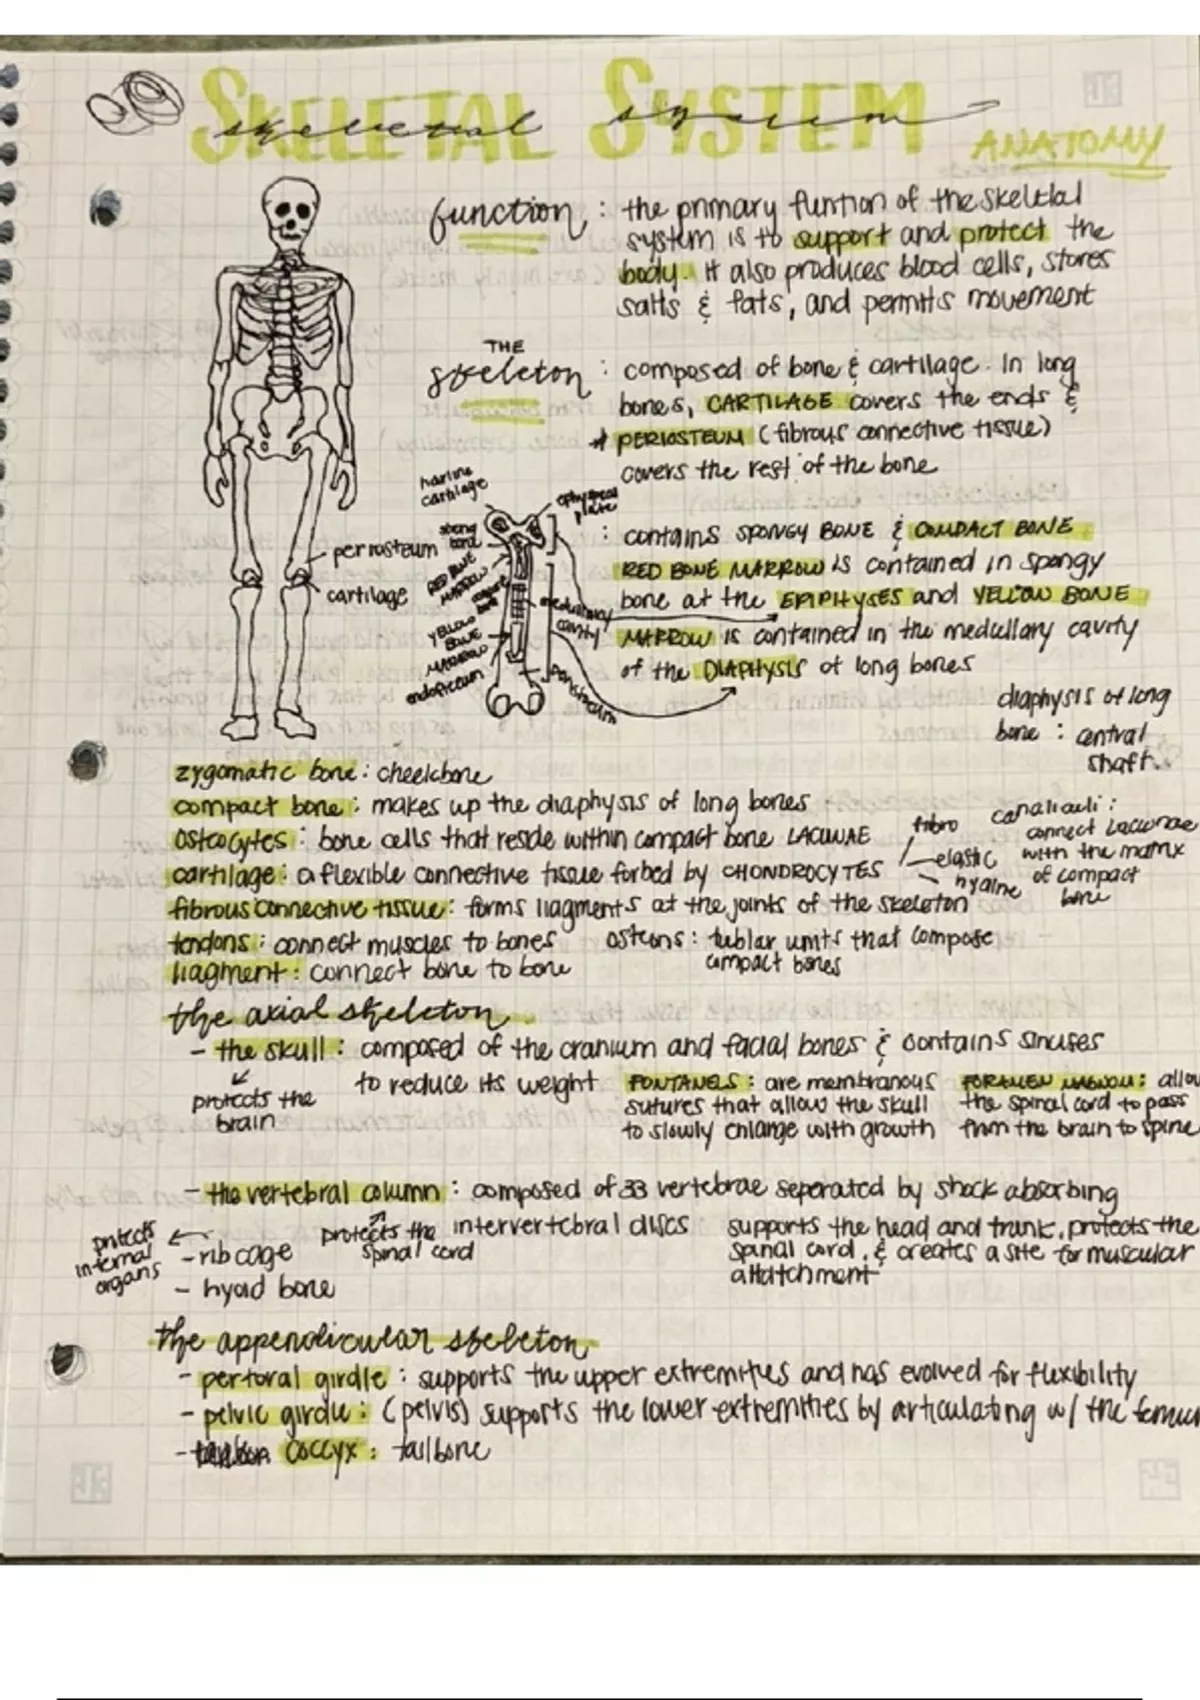 SKELETAL SYSTEM
skeletal system
ANATOMY
function : the primary funtion of the skeletal
system is to support and protect the
body. It also produces blood cells, stores
salts & fats, and permits movement
THE
skeleton : composed of bone & cartilage. In long
bones, CARTILAGE covers the ends &
PERIOSTEUM (fibrous connective tissue)
covers the rest of the bone
: contains SPONGY BONE & COMPACT BONE
RED BONE MARROW is contained in spongy
bone at the EPIPHYSES and YELLOW BONE
MARROW is contained in the medullary cavity
of the DIAPHYSIS of long bones
diaphysis of long
bone : central
shaft.
periosteum
cartilage
cartilage
plate
RED BONE
MARROW
YELLOW
BONE
MARROW
endosteum
medullary
cavity
periosteum
zygomatic bone : cheekbone
compact bone : makes up the diaphysis of long bones
osteocytes : bone cells that reside within compact bone LACUNAE
cartilage : a flexible connective tissue forbed by CHONDROCYTES
fibro
elastic
hyaline
canaliculi :
connect Lacunae
with the matrix
of compact
bone
fibrous connective tissue : forms liagments at the joints of the skeleton
tendons : connect muscles to bones
osteons : tublar units that compose
compact bones
liagment : connect bone to bone
the axial skeleton
- the skull : composed of the cranium and facial bones & contains sinuses
to reduce its weight
protects the
brain
FONTANELS : are membranous
sutures that allow the skull
to slowly enlarge with growth
FORAMEN MAGNUM : allow
the spinal cord to pass
from the brain to spine
- the vertebral column : composed of 33 vertebrae seperated by shock absorbing
intervertebral discs
protects the
spinal cord
supports the head and trunk, protects the
spinal cord, & creates a site for muscular
attatchment
protects
internal
organs
- rib cage
- hyoid bone
the appendicular skeleton
- pertoral girdle : supports the upper extremities and has evolved for flexibility
- pelvic girdle : (pelvis) supports the lower extremities by articulating w/ the femur
- coccyx : tailbone